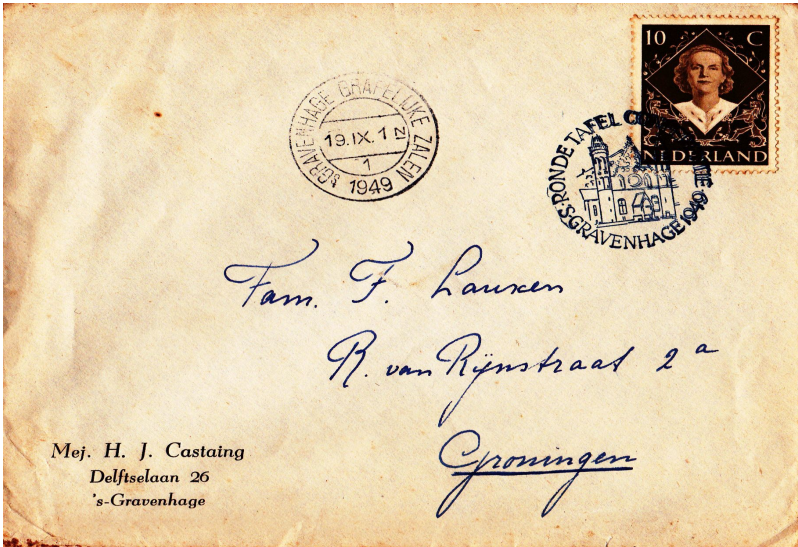 10 C
NEDERLAND
'SGRAVENHAGE GRAFELIJKE ZALEN
19.IX.1 N
1
1949
RONDETAFEL
'S-GRAVENHAGE 1949
Fam. F. Lauxen
R. van Rijnstraat 2a
Groningen
Mej. H. J. Castaing
Delftselaan 26
's-Gravenhage